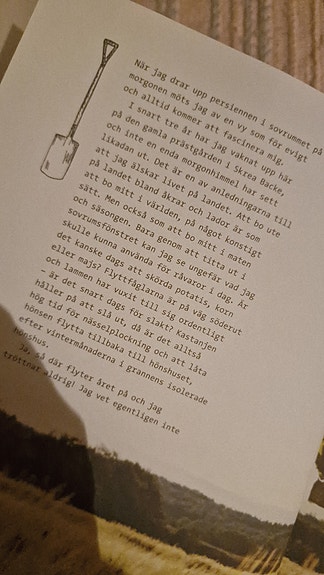 När jag drar upp persiennen i sovrummet på
morgonen möts jag av en vy som för evigt
och alltid kommer att fascinera mig.
I snart tre år har jag vaknat upp här
på den gamla prästgården i Skrea Backe,
och inte en enda morgonhimmel har sett
likadan ut. Det är en av anledningarna till
att jag älskar livet på landet. Att bo ute
på landet bland åkrar och lador är som
att bo mitt i världen, på något konstigt
sätt. Men också som att bo mitt i maten
och säsongen. Bara genom att titta ut i
sovrumsfönstret kan jag se ungefär vad jag
skulle kunna använda för råvaror i dag. Är
det kanske dags att skörda potatis, korn
eller majs? Flyttfåglarna är på väg söderut
och lammen har vuxit till sig ordentligt
– är det snart dags för slakt? Kastanjen
håller på att slå ut, då är det alltså
hög tid för nässelplockning och att låta
hönsen flytta tillbaka till hönshuset,
efter vintermånaderna i grannens isolerade
hönshus.
Ja, så där flyter året på och jag
tröttnar aldrig! Jag vet egentligen inte